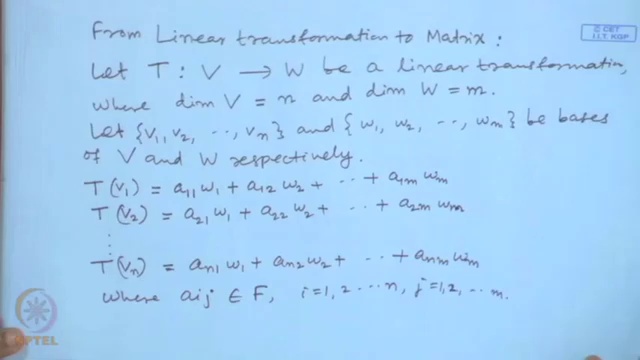 © CET
I.I.T. KGP
From Linear transformation to Matrix:
Let T: V → W be a linear transformation,
where dim V = n and dim W = m.
Let {v₁, v₂, ..., vₙ} and {w₁, w₂, ..., wₘ} be bases
of V and W respectively.
T(v₁) = a₁₁w₁ + a₁₂w₂ + ... + a₁ₘwₘ
T(v₂) = a₂₁w₁ + a₂₂w₂ + ... + a₂ₘwₘ
⋮
T(vₙ) = aₙ₁w₁ + aₙ₂w₂ + ... + aₙₘwₘ
where aij ∈ F, i=1,2...n, j=1,2,...m.
NPTEL